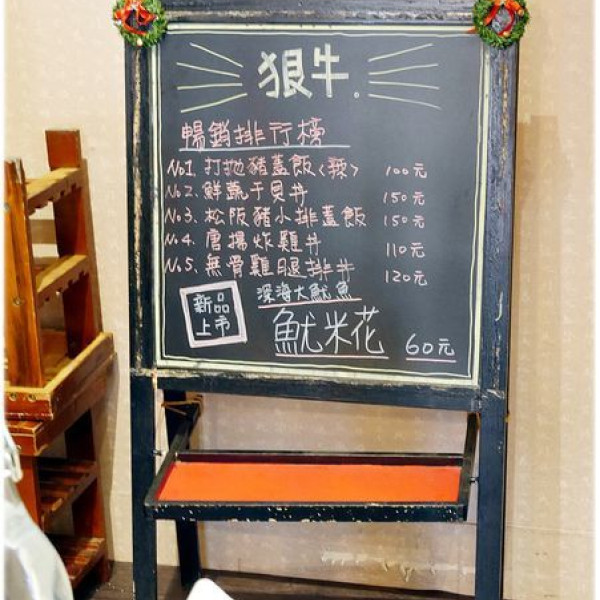 狠牛。
暢銷排行榜
No1. 打拋豬蓋飯<辣> 100元
No2. 鮮蔬干貝丼 150元
No3. 松阪豬小排蓋飯 150元
No4. 唐揚炸雞丼 110元
No5. 無骨雞腿排丼 120元
新品
上市
深海大魷魚
魷米花 60元